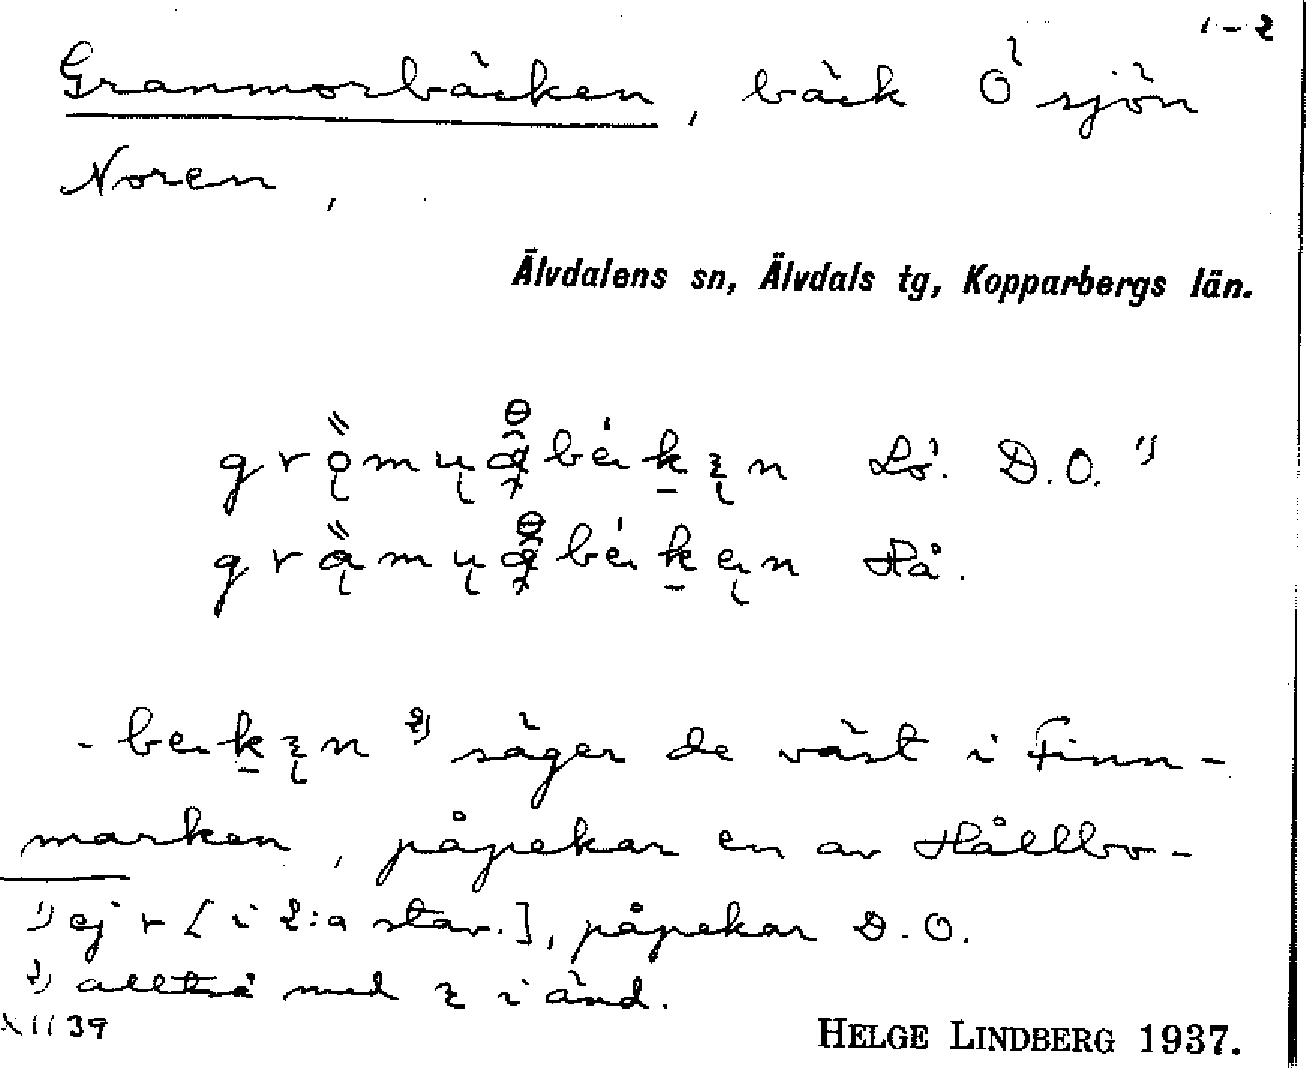 1-2
Granmorbäcken, bäck Ö sjön
Noren,
Älvdalens sn, Älvdals tg, Kopparbergs län.
Lö. D.O. 1)
Hå.
2) säger de väst i Finn-
marken, påpekar en av Hållbo-
1) ej r [i 2:a stav.], påpekar D.O.
2) alltså med z i änd.
XII 39
HELGE LINDBERG 1937.